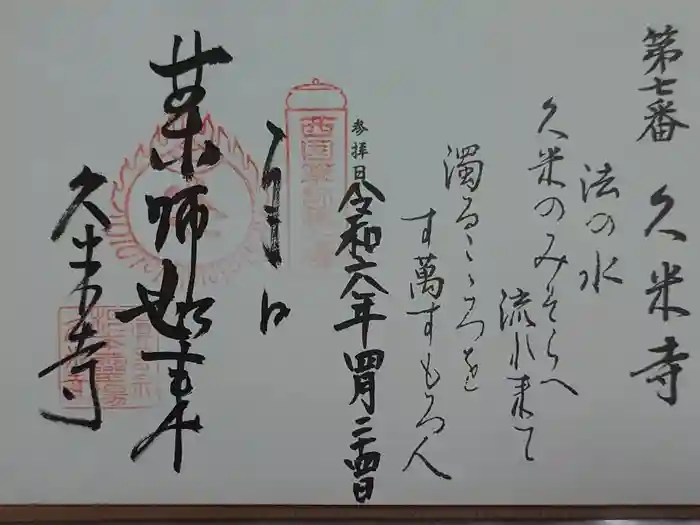 第七番 久米寺
法の水
久米のみそらへ
流れ来て
濁るこゝろを
すますもろ人
参拝日
令和六年四月二十四日
薬師如来
久米寺